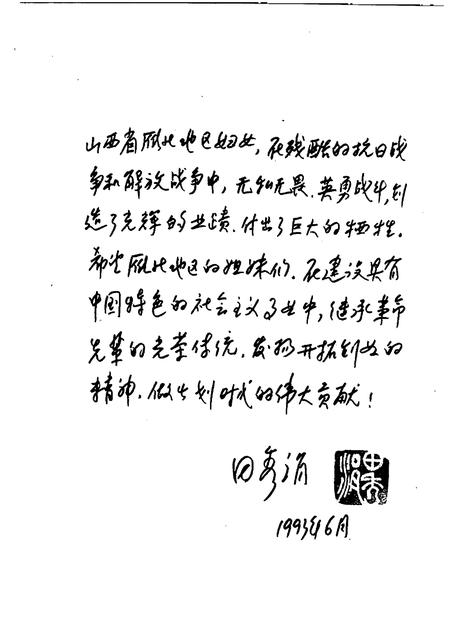 山西省雁北地区妇女，在残酷的抗日战
争和解放战争中，无私无畏、英勇战斗，创
造了光辉的业蹟，付出了巨大的牺牲。
希望雁北地区的姐妹们，在建设具有
中国特色的社会主义事业中，继承革命
先辈的光荣传统，发扬开拓创业的
精神，做出划时代的伟大贡献！
田秀涓
田秀涓
1993年6月